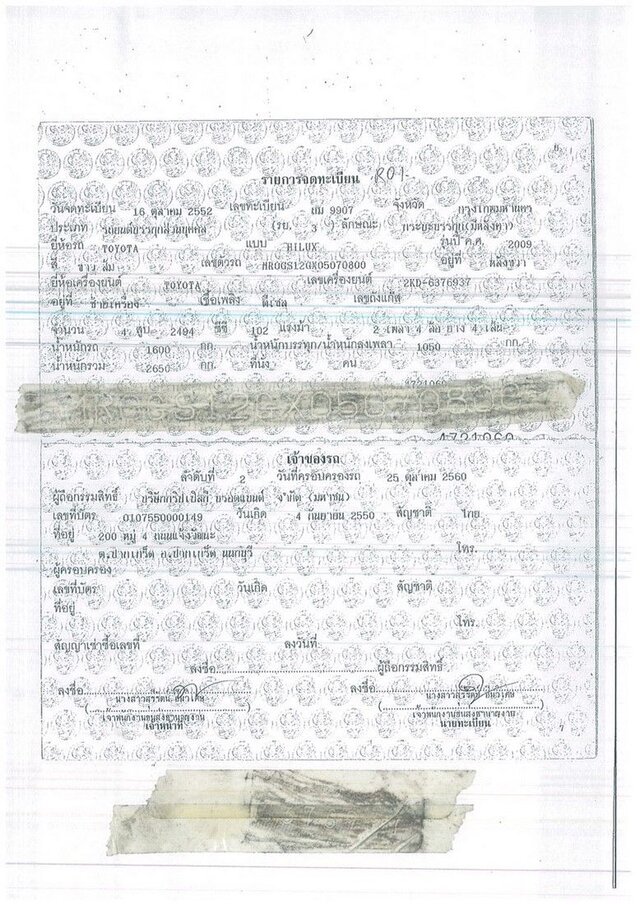 รายการจดทะเบียน RO1.
วันจดทะเบียน 16 ตุลาคม 2552 เลขทะเบียน ฌม 9907 จังหวัด กรุงเทพมหานคร
ประเภท รถยนต์บรรทุกส่วนบุคคล (รย. 3 ) ลักษณะ กระบะบรรทุก(มีหลังคา)
ยี่ห้อรถ TOYOTA แบบ HILUX รุ่นปี ค.ศ. 2009
สี ขาว ส้ม เลขตัวรถ MROGS12GX05070800 อยู่ที่ หลังขวา
ยี่ห้อเครื่องยนต์ TOYOTA เลขเครื่องยนต์ 2KD-6376937
อยู่ที่ ซ้ายเครื่อง เชื้อเพลิง ดีเซล เลขถังแก๊ส
จำนวน 4 สูบ 2494 ซีซี 102 แรงม้า 2 เพลา 4 ล้อ ยาง 4 เส้น
น้ำหนักรถ 1600 กก. น้ำหนักบรรทุก/น้ำหนักลงเพลา 1050 กก.
น้ำหนักรวม 2650 กก. ที่นั่ง คน
เจ้าของรถ
ลำดับที่ 2 วันที่ครอบครองรถ 25 ตุลาคม 2560
ผู้ถือกรรมสิทธิ์ จำกัด (มหาชน)
เลขที่บัตร 0107550000149 วันเกิด 4 กันยายน 2550 สัญชาติ ไทย
ที่อยู่ 200 หมู่ 4 ถนนแจ้งวัฒนะ
ต.ปากเกร็ด อ.ปากเกร็ด นนทบุรี โทร.
ผู้ครอบครอง
เลขที่บัตร วันเกิด สัญชาติ
ที่อยู่
โทร.
สัญญาเช่าซื้อเลขที่ ลงวันที่
ลงชื่อ ผู้ถือกรรมสิทธิ์
ลงชื่อ ลงชื่อ
เจ้าพนักงานขนส่งชำนาญงาน เจ้าพนักงานขนส่งชำนาญงาน
เจ้าหน้าที่ นายทะเบียน